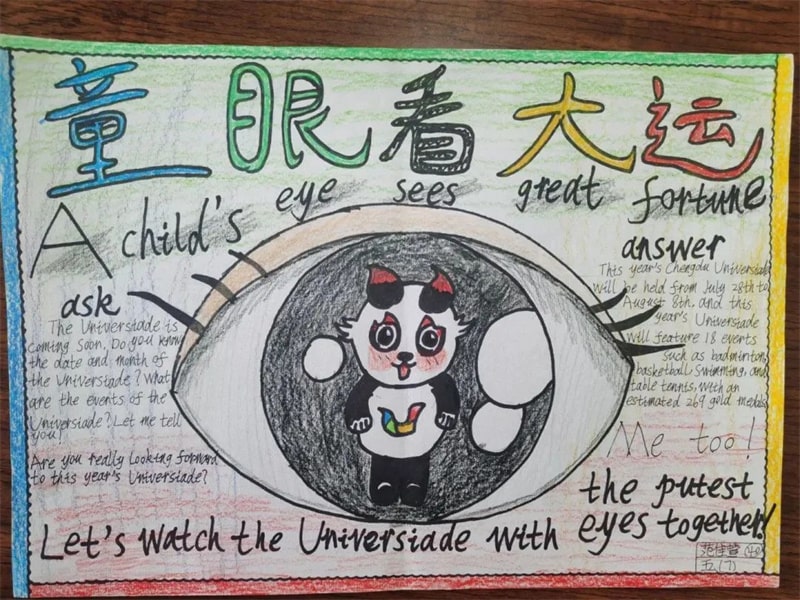 童眼看大运
A child's eye sees great fortune
ask
The Universiade is
coming soon, Do you know
the date and month of
the Universiade? What
are the events of the
Universiade? Let me tell
you!
Are you really looking forward
to this year's Universiade?
answer
This year's Chengdu Universiade
will be held from July 28th to
August 8th, and this
year's Universiade
will feature 18 events
such as badminton,
basketball swimming and
table tennis, with an
estimated 269 gold medals
Me too!
Let's watch the Universiade with
the putest
eyes together!
五(7)